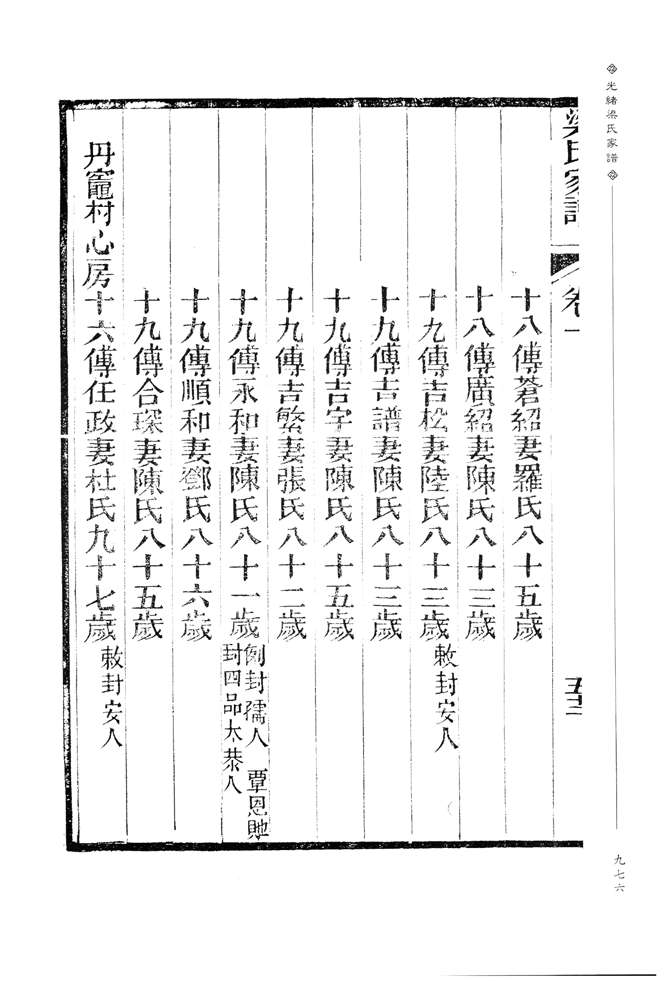 光緒梁氏家譜
梁氏家譜 卷一
五十三
十八傳蒼紹妻羅氏八十五歲
十八傳廣紹妻陳氏八十三歲
十九傳吉松妻陸氏八十三歲 敕封安人
十九傳吉譜妻陳氏八十三歲
十九傳吉字妻陳氏八十五歲
十九傳吉繁妻張氏八十二歲
十九傳永和妻陳氏八十一歲 例封孺人 覃恩貤封四品太恭人
十九傳順和妻鄧氏八十六歲
十九傳合琛妻陳氏八十五歲
丹竈村心房十六傳任政妻杜氏九十七歲 敕封安人
九七六